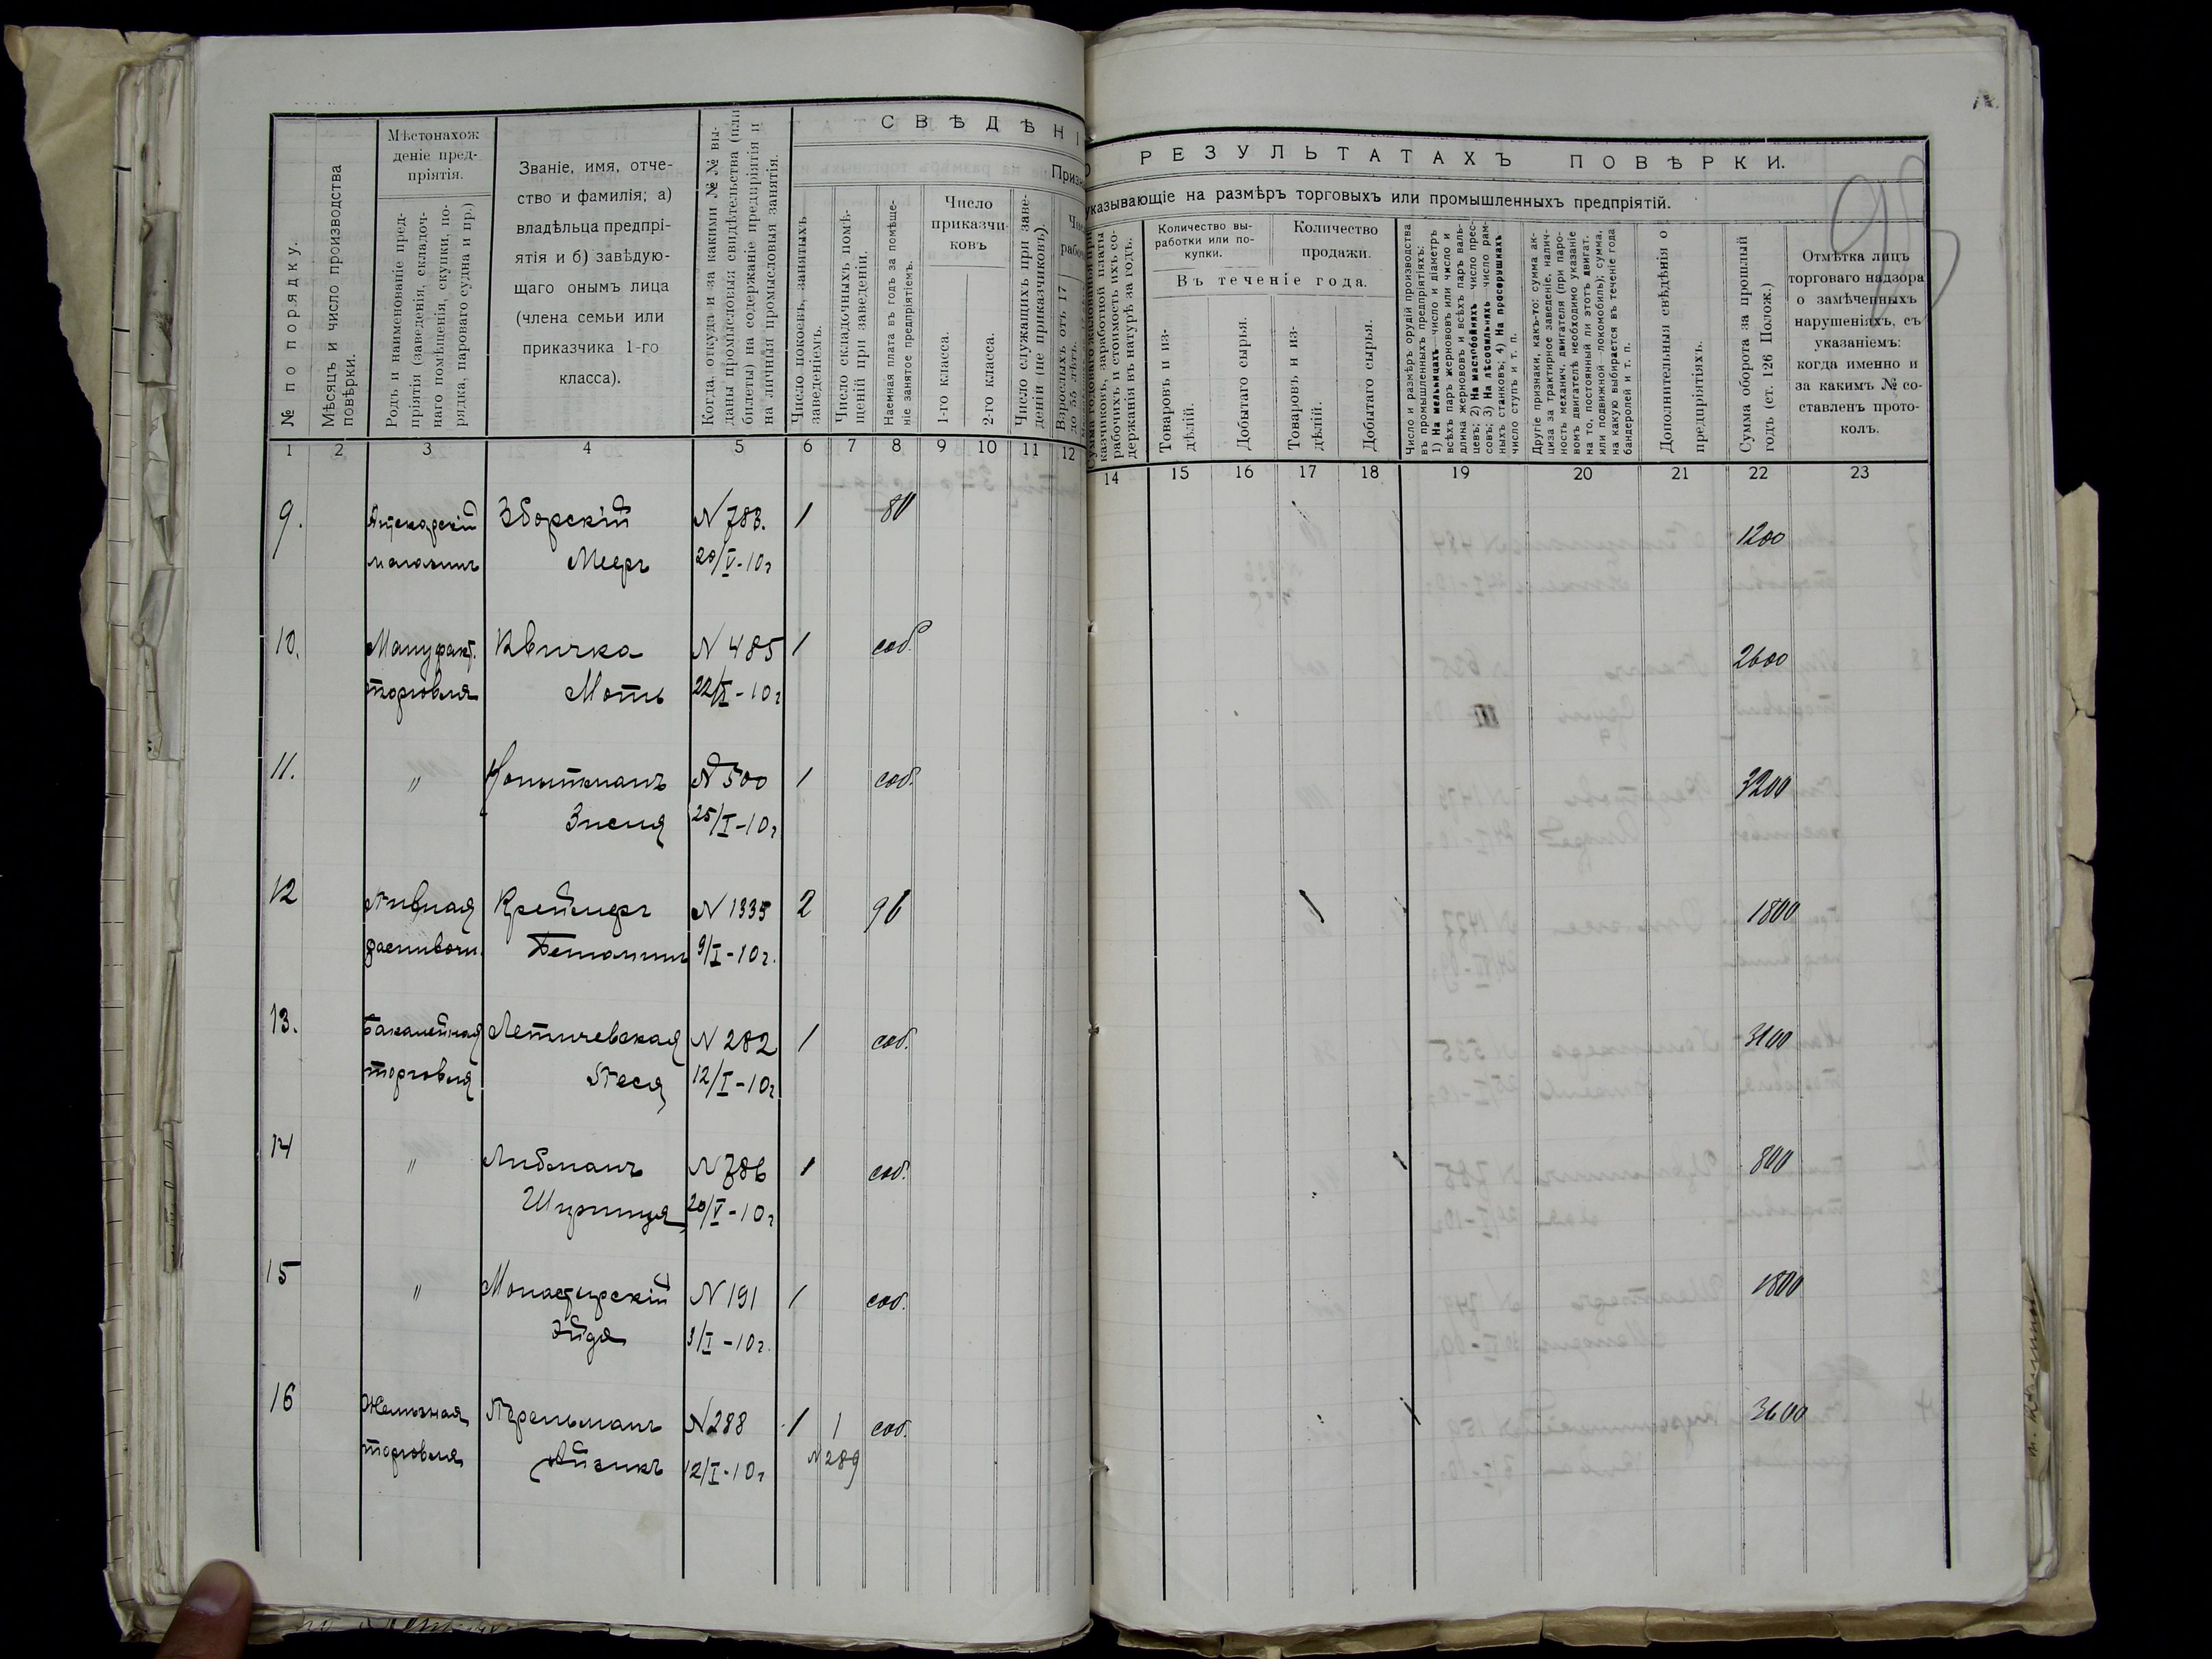 СВѢДѢНІ
Призн
№ по порядку.
Мѣсяцъ и число производства
повѣрки.
Мѣстонахож
деніе пред-
пріятія.
Родъ и наименованіе пред-
пріятія (заведенія, складоч-
наго помѣщенія, скупки, по-
рядка, парового судна и пр.)
Званіе, имя, отче-
ство и фамилія; а)
владѣльца предпрі-
ятія и б) завѣдую-
щаго онымъ лица
(члена семьи или
приказчика 1-го
класса).
Когда, откуда и за какими №№ вы-
даны промысловыя свидѣтельства (или
билеты) на содержаніе предпріятія и
на личныя промысловыя занятія.
Число покоевъ, занятыхъ
заведеніемъ.
Число складочныхъ помѣ-
щеній при заведеніи.
Наемная плата въ годъ за помѣще-
ніе занятое предпріятіемъ.
Число
приказчи-
ковъ
1-го класса.
2-го класса.
Число служащихъ при заве-
деніи (не приказчиковъ).
Взрослыхъ отъ 17
до 55 лѣтъ.
1 2 3 4 5 6 7 8 9 10 11 12
9. Аптекарскій Зборскій N 783. 1 80
магазинъ Мееръ 20/V-10г
10. Мануфакт. Квичка N 485 1 соб.
торговля Моть 22/II-10г
11. " Копытманъ N 500 1 соб.
Зисля 25/I-10г
12 Пивная Креймеръ N 1335 2 96
распивочн. Беньминъ 9/I-10г.
13. Бакалейная Летичевская N 282 1 соб.
торговля Песя 12/I-10г
14 " Либманъ N 786 1 соб.
Шпринца 20/V-10г
15 " Монастырскій N 191 1 соб.
Эйдя 3/I-10г.
16 Желѣзная Перельманъ N 288 1 1 соб.
торговля Айзикъ 12/I-10г N 289
РЕЗУЛЬТАТАХЪ ПОВѢРКИ.
указывающіе на размѣръ торговыхъ или промышленныхъ предпріятій.
казчиковъ, заработной платы
рабочихъ и стоимость ихъ со-
держанія въ натурѣ за годъ.
Количество вы-
работки или по-
купки.
Количество
продажи.
Въ теченіе года.
Товаровъ и из-
дѣлій.
Добытаго сырья.
Товаровъ и из-
дѣлій.
Добытаго сырья.
Число и размѣръ орудій производства
въ промышленныхъ предпріятіяхъ:
1) На мельницахъ число и діаметръ
всѣхъ паръ жернововъ или число и
длина жернововъ и всѣхъ паръ валь-
цевъ; 2) На маслобойняхъ число прес-
совъ; 3) На лѣсопильняхъ число рам-
ныхъ станковъ; 4) На просорушкахъ
число ступъ и т. п.
Другіе признаки, какъ-то: сумма ак-
циза за трактирное заведеніе, налич-
ность механич. двигателя (при паро-
вомъ двигателѣ необходимо указаніе
на то, постоянный ли этотъ двигат.
или подвижной—локомобиль); сумма,
на какую выбирается въ теченіе года
бандеролей и т. п.
Дополнительныя свѣдѣнія о
предпріятіяхъ.
Сумма оборота за прошлый
годъ (ст. 126 Полож.)
Отмѣтка лицъ
торговаго надзора
о замѣченныхъ
нарушеніяхъ, съ
указаніемъ:
когда именно и
за какимъ № со-
ставленъ прото-
колъ.
14 15 16 17 18 19 20 21 22 23
1200
2600
3200
1800
3100
800
1800
3600